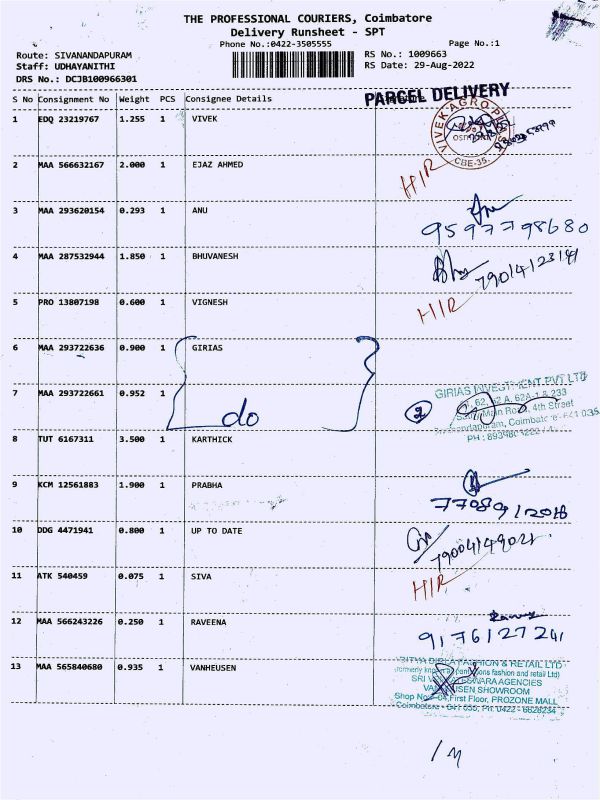 THE PROFESSIONAL COURIERS, Coimbatore
Delivery Runsheet - SPT
Phone No.:0422-3505555
Page No.:1
Route: SIVANANDAPURAM
RS No.: 1009663
Staff: UDHAYANITHI
RS Date: 29-Aug-2022
DRS No.: DCJB100966301
PARCEL DELIVERY
S No Consignment No Weight PCS Consignee Details
1 EDQ 23219767 1.255 1 VIVEK
VIVEK AGRO
CBE-35.
2 MAA 566632167 2.000 1 EJAZ AHMED
HIR
3 MAA 293620154 0.293 1 ANU
9597798680
4 MAA 287532944 1.850 1 BHUVANESH
7904123141
5 PRO 13807198 0.600 1 VIGNESH
HIR
6 MAA 293722636 0.900 1 GIRIAS
7 MAA 293722661 0.952 1 do
2
GIRIAS INVESTMENT PVT LTD
62, 62 A, 62A-1 & 233
Main Road, 4th Street
Coimbatore-641 035
8 TUT 6167311 3.500 1 KARTHICK
9 KCM 12561883 1.900 1 PRABHA
10 DDG 4471941 0.800 1 UP TO DATE
7900414902
11 ATK 540459 0.075 1 SIVA
HIR
12 MAA 566243226 0.250 1 RAVEENA
9176127241
13 MAA 565840680 0.935 1 VANHEUSEN
FASHION & RETAIL LTD
fashion and retail Ltd)
AGENCIES
SHOWROOM
First Floor, PROZONE MALL